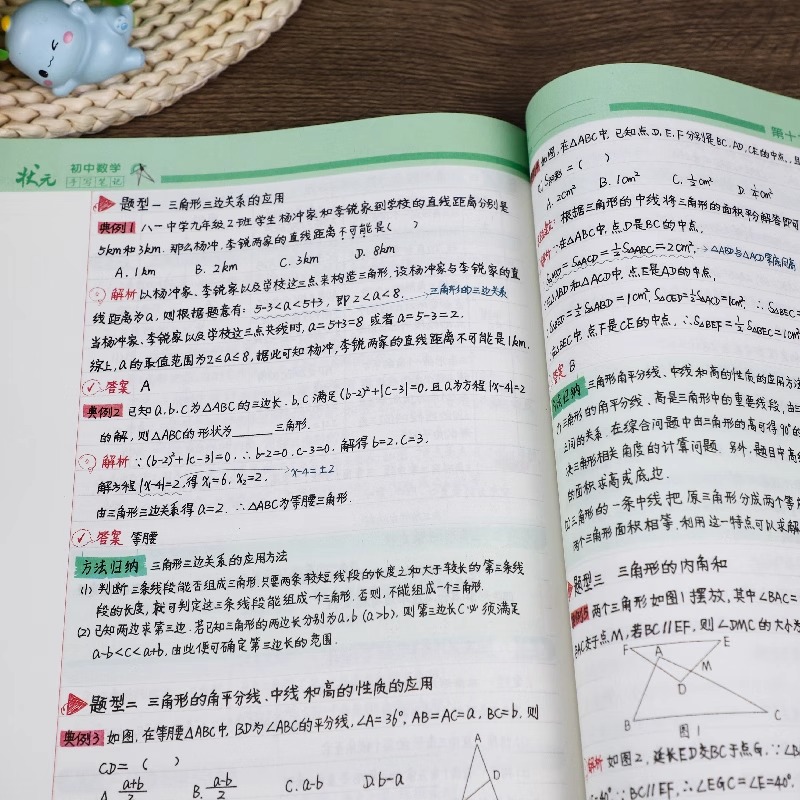 状元
初中数学
手写笔记
题型一 三角形三边关系的应用
典例1 八一中学九年级2班学生杨冲家和李锐家到学校的直线距离分别是
5km和3km.那么杨冲,李锐两家的直线距离不可能是( )
A.1km B.2km C.3km D.8km
解析 以杨冲家、李锐家以及学校这三点来构造三角形,设杨冲家与李锐家的直
线距离为a,则根据题意有:5-3<a<5+3,即2<a<8. →三角形的三边关系
当杨冲家、李锐家以及学校这三点共线时,a=5+3=8或者a=5-3=2.
综上,a的取值范围为2≤a≤8,据此可知杨冲,李锐两家的直线距离不可能是1km.
答案 A
典例2 已知a,b,c为△ABC的三边长.b,c满足(b-2)²+|c-3|=0,且a为方程|x-4|=2
的解,则△ABC的形状为______三角形.
解析 ∵(b-2)²+|c-3|=0,∴b-2=0,c-3=0.解得b=2,c=3.
解方程|x-4|=2,得x₁=6,x₂=2. →x-4=±2
由三角形三边关系得a=2.∴△ABC为等腰三角形.
答案 等腰
方法归纳 三角形三边关系的应用方法
(1)判断三条线段能否组成三角形.只要两条较短线段的长度之和大于较长的第三条线
段的长度,就可判定这三条线段能组成一个三角形.否则,不能组成一个三角形.
(2)已知两边求第三边.若已知三角形的两边长分别为a,b(a>b),则第三边长c必须满足
a-b<c<a+b,由此便可确定第三边长的范围.
题型二 三角形的角平分线、中线和高的性质的应用
典例3 如图,在等腰△ABC中,BD为∠ABC的平分线,∠A=36°,AB=AC=a,BC=b,则
CD=( )
A. (a+b)/2 B. (a-b)/2 C. a-b D. b-a
A
D
第十
如图,在△ABC中,已知点D,E,F分别是BC,AD,CE的中点,
=( )
A.2cm² B.1cm² C.½cm² D.¼cm²
根据三角形的中线将三角形的面积平分解答即可
∵在△ABC中,点D是BC的中点,
=S△ACD=½S△ABC=2cm², →△ABD与△ACD等底同高
△ABD和△ACD中,点E是AD的中点,
=½S△ABD=1cm²,S△CED=½S△ACD=1cm²,∴S△BEC=
△BEC中,点F是CE的中点,∴S△BEF=½S△BEC=1cm²
答案 B
方法归纳 三角形角平分线、中线和高的性质的应用方法
三角形的角平分线、高是三角形中的重要线段,由三
之间的关系.在综合问题中由三角形的高可得90°的
决三角形相关角度的计算问题.另外,题目中高
的面积求高或底边.
三角形的一条中线把原三角形分成两个等
两个三角形面积相等,利用这一特点可以求解
题型三 三角形的内角和
两个三角形如图1摆放,其中∠BAC=
交于点M,若BC∥EF,则∠DMC的大小
F A E
M
D
B C
图1
解析 如图2,延长ED交BC于点G.∵∠B
=40°.∵BC∥EF,∴∠EGC=∠E=40°.